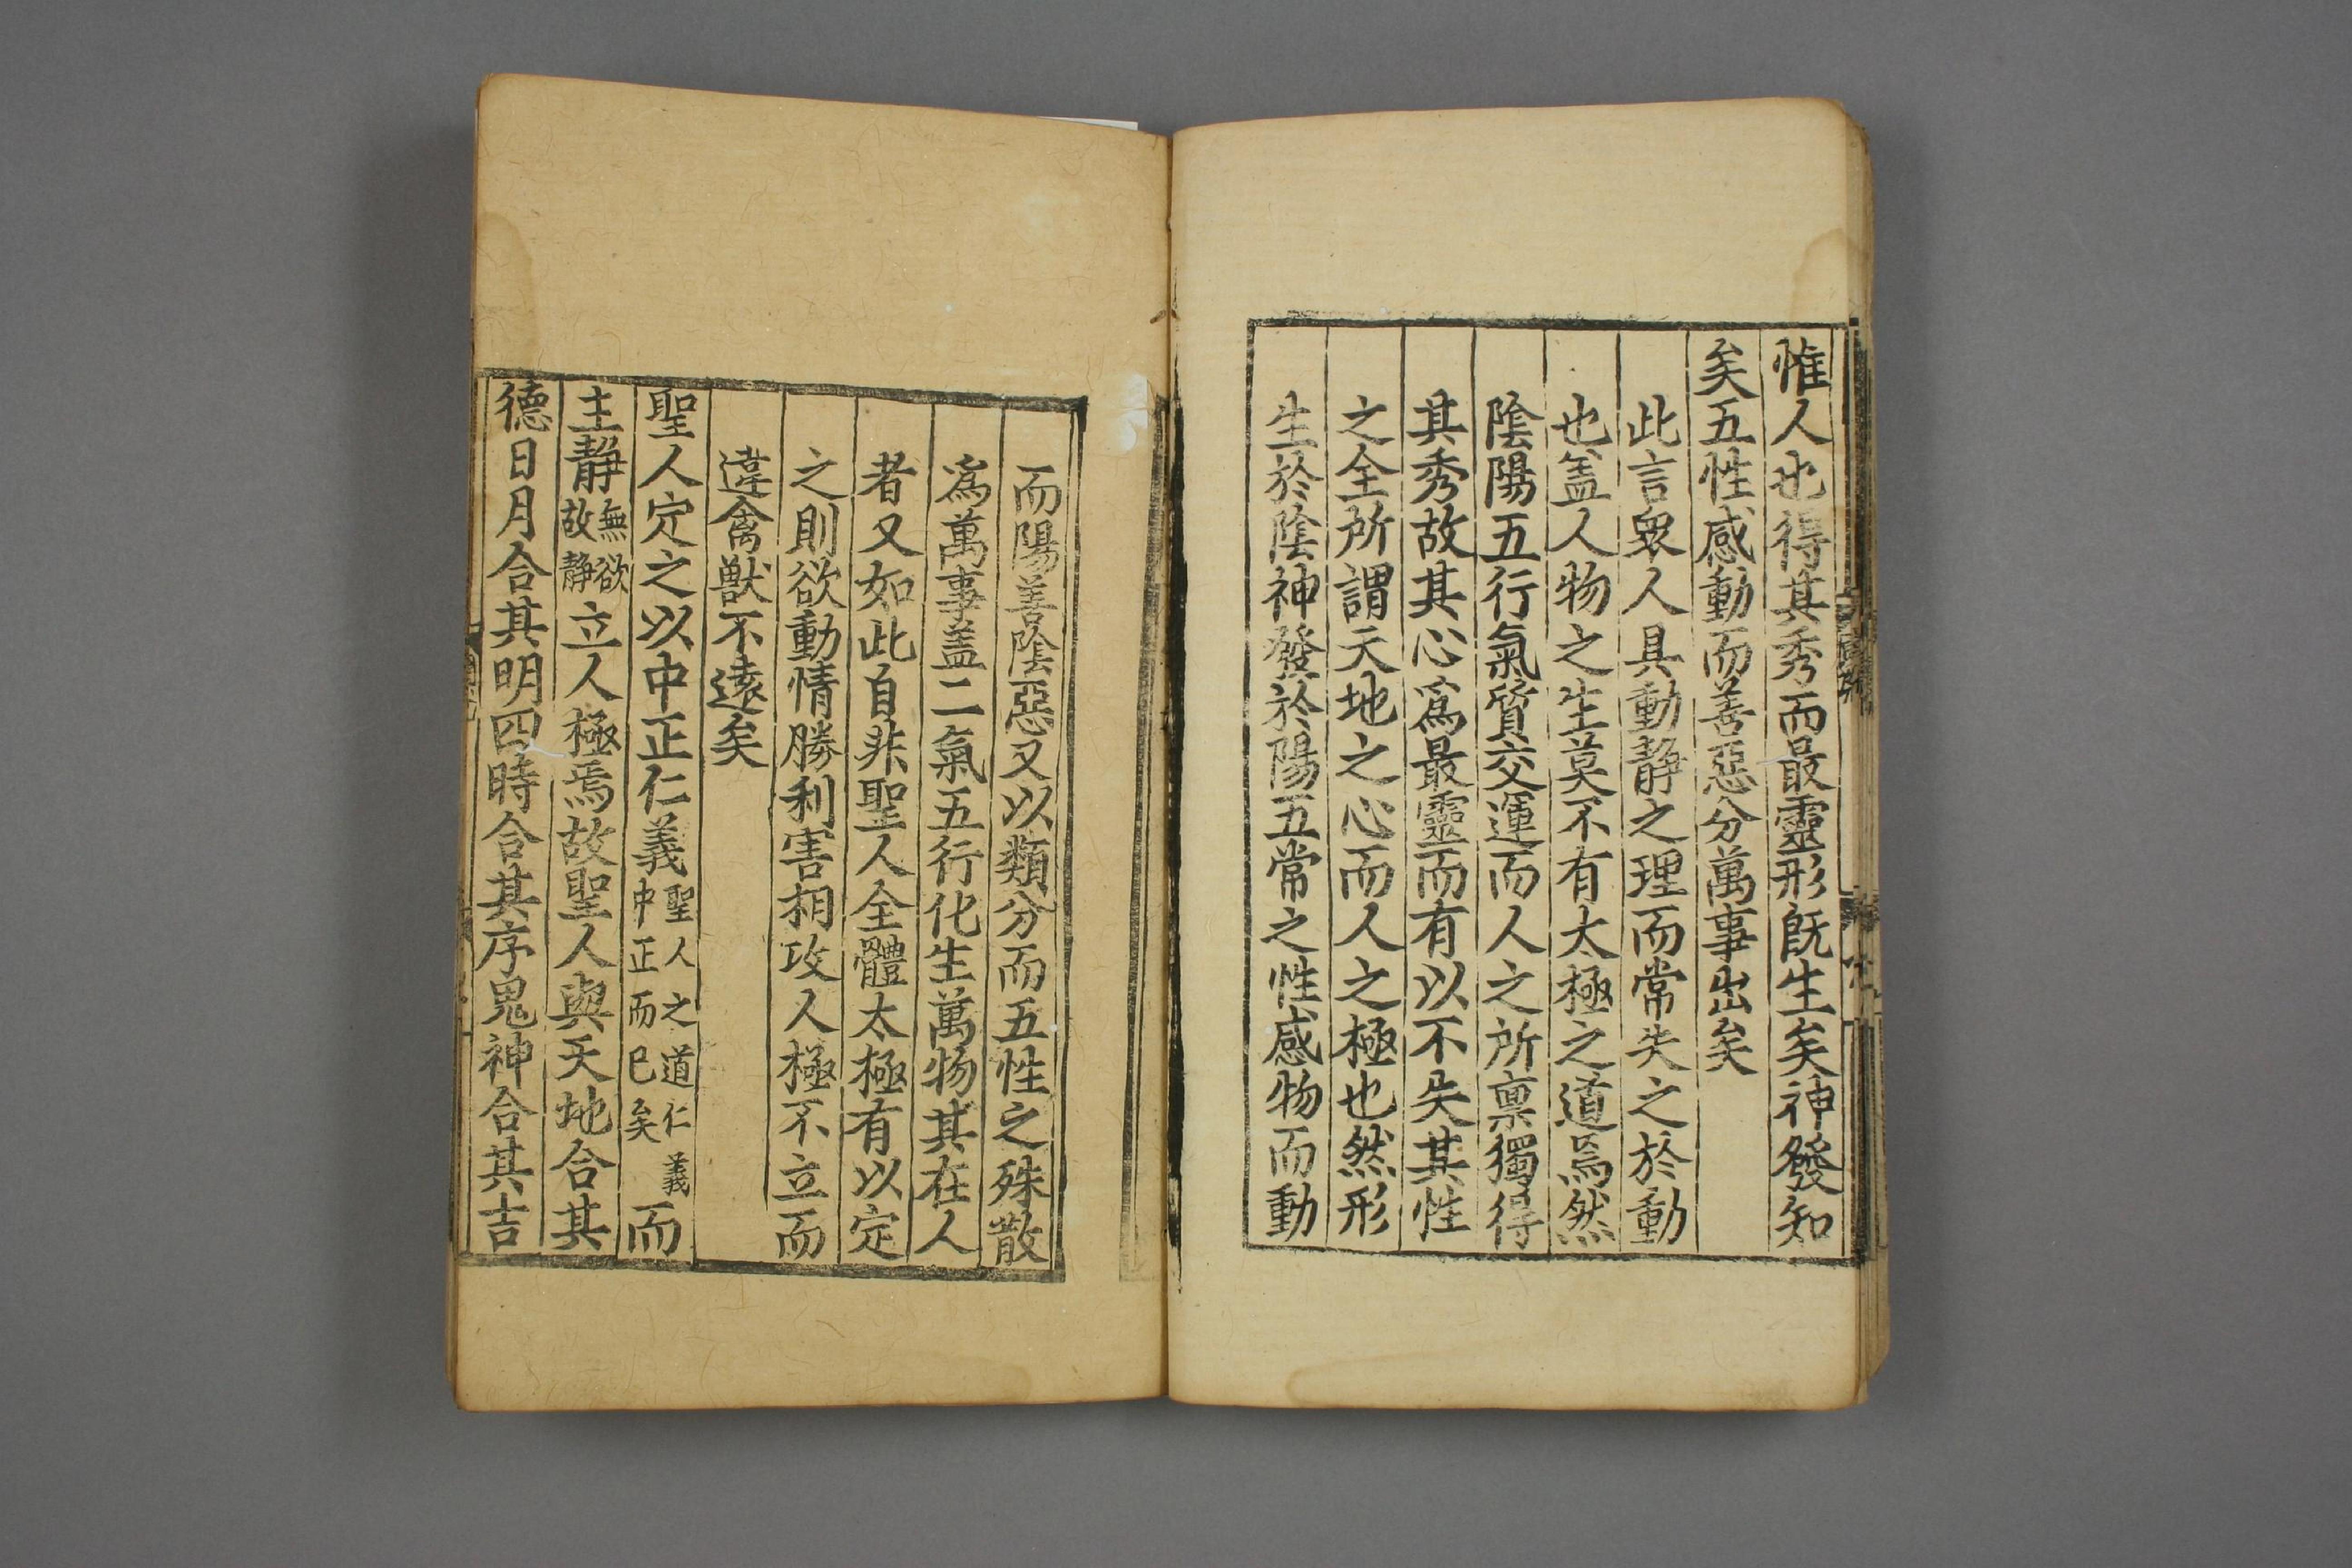 惟人也得其秀而最靈形旣生矣神發知
矣五性感動而善惡分萬事出矣
此言衆人具動静之理而常失之於動
也盖人物之生莫不有太極之道焉然
陰陽五行氣質交運而人之所禀獨得
其秀故其心爲最靈而有以不失其性
之全所謂天地之心而人之極也然形
生於陰神發於陽五常之性感物而動
而陽善陰惡又以類分而五性之殊散
爲萬事盖二氣五行化生萬物其在人
者又如此自非聖人全體太極有以定
之則欲動情勝利害相攻人極不立而
違禽獸不遠矣
聖人定之以中正仁義聖人之道仁義中正而已矣而
主静無欲故静立人極焉故聖人與天地合其
德日月合其明四時合其序鬼神合其吉